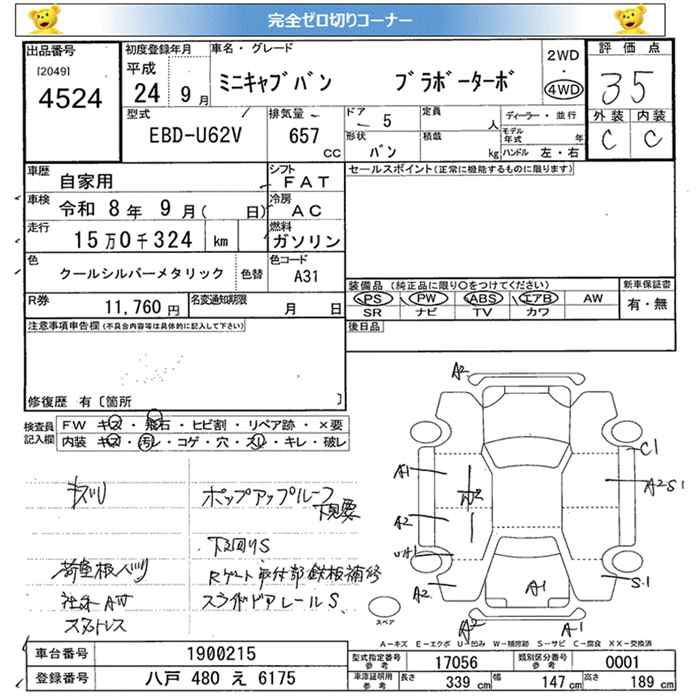 完全ゼロ切りコーナー
出品番号
[2049]
4524
初度登録年月
平成
24 9月
車名・グレード
ミニキャブバン ブラボーターボ
2WD
・
4WD
評価点
3 5
外装 内装
C C
型式
EBD-U62V
排気量
657
cc
ドア
5
形状
バン
定員
人
積載
kg
ディーラー・並行
モデル年式 年
ハンドル 左・右
車歴
自家用
シフト
FAT
車検 令和 8年 9月( 日)
冷房
AC
走行
15万0千324 km
燃料
ガソリン
色
クールシルバーメタリック
色替
色コード
A31
R券
11,760円
名変通知期限
月 日
セールスポイント(正常に機能するものに限ります)
装備品(純正品に限り〇をつけてください)
PS PW ABS エアB AW
SR ナビ TV カワ
新車保証書
有・無
後日品
注意事項申告欄(不具合内容等は具体的に記入して下さい)
修復歴 有〔箇所 〕
検査員記入欄
FW キズ・飛石・ヒビ割・リペア跡・×要
内装 キズ・汚レ・コゲ・穴・スレ・キレ・破レ
キズU
ポップアップルーフ
下見要
下回りS
Rゲート取付部鉄板補修
社外AW スライドドアレールS
スタットレス
A2
A1
A2
A2
UA1
A2
C1
A2S1
S1
A1
A2
A1
スペア
A-キズ E-エクボ U-凹み W-補修跡 S-サビ C-腐食 XX-交換済
車台番号 1900215
登録番号 八戸 480 え 6175
型式指定番号 参考 17056
類別区分番号 参考 0001
車庫証明用 参考 長さ 339 cm 幅 147 cm 高さ 189 cm